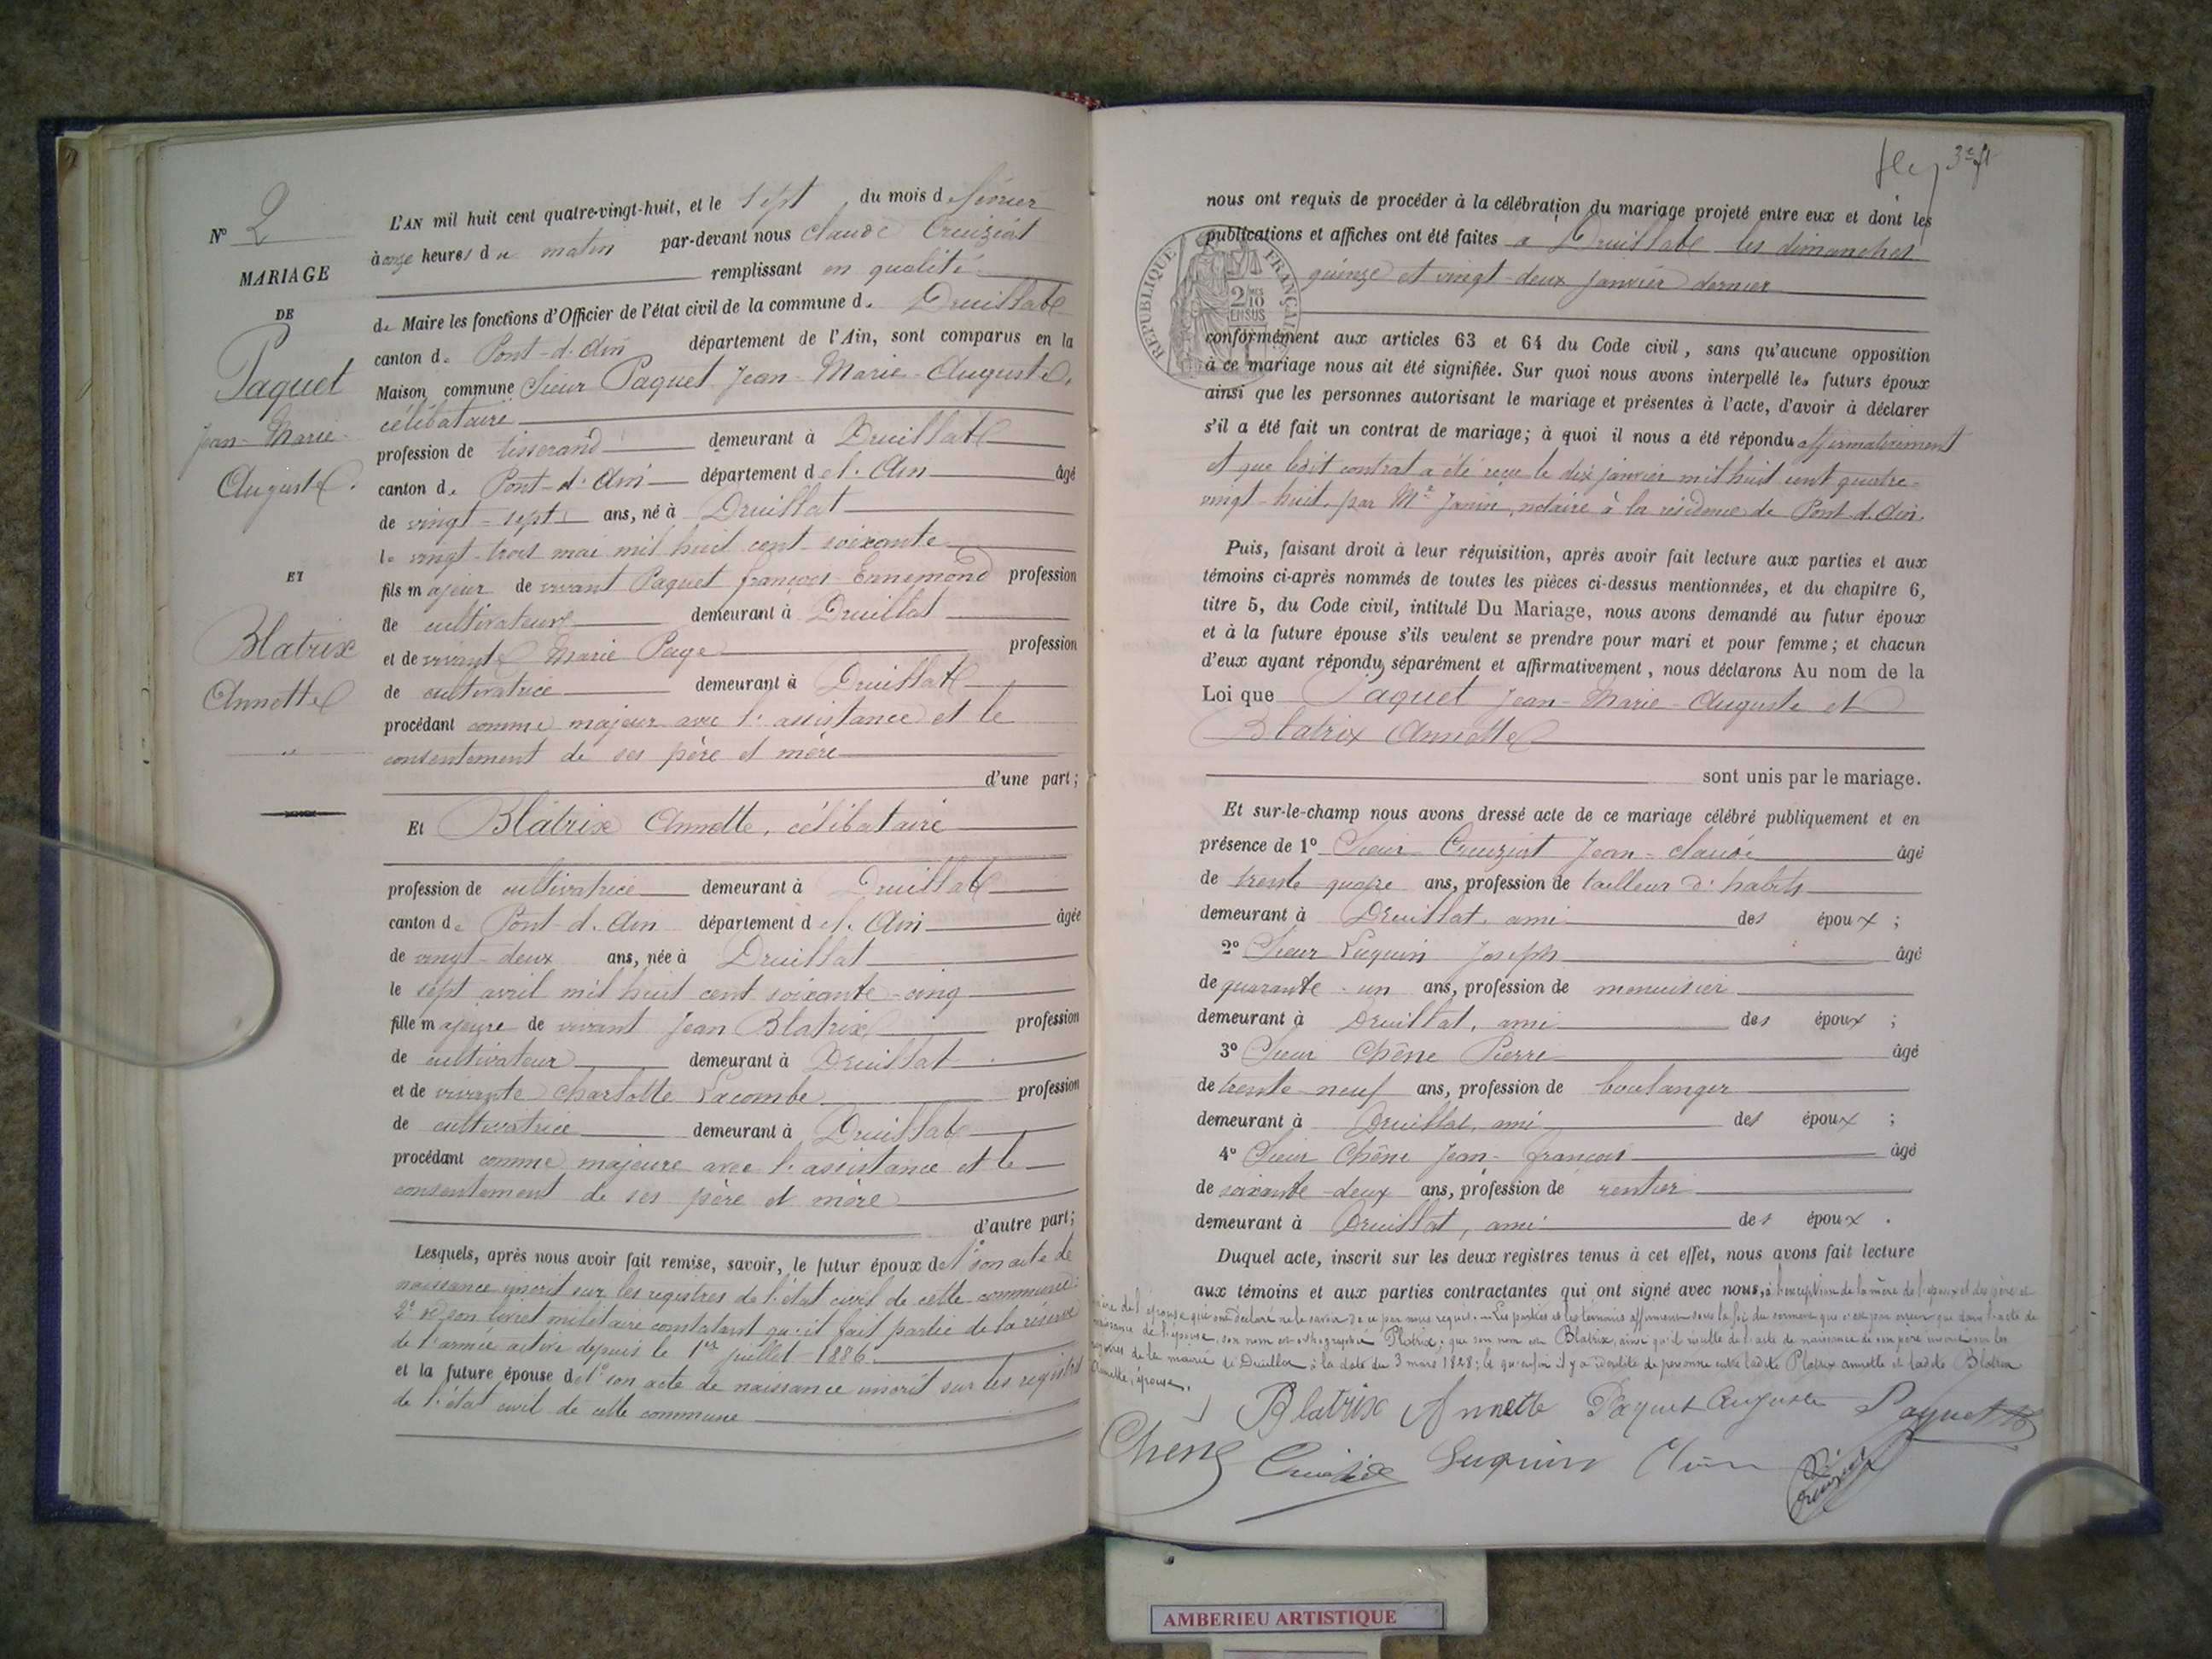 N° 2
MARIAGE
DE
Paquet
Jean-Marie-
Auguste.
ET
Blatrix
Annette
L'AN mil huit cent quatre-vingt-huit, et le sept du mois de février
à onze heures du matin par-devant nous Claude Creuziat
remplissant en qualité
de Maire les fonctions d'Officier de l'état civil de la commune de Druillat
canton de Pont-d'Ain département de l'Ain, sont comparus en la
Maison commune Sieur Paquet Jean-Marie-Auguste,
célibataire
profession de tisserand demeurant à Druillat
canton de Pont-d'Ain département de l'Ain âgé
de vingt-sept ans, né à Druillat
le vingt-trois mai mil huit cent soixante
fils majeur de vivant Paquet françois-Ennemond profession
de cultivateur demeurant à Druillat
et de vivante Marie Page profession
de cultivatrice demeurant à Druillat
procédant comme majeur avec l'assistance et le
consentement de ses père et mère
d'une part;
Et Blatrix Annette, célibataire
profession de cultivatrice demeurant à Druillat
canton de Pont-d'Ain département de l'Ain âgée
de vingt-deux ans, née à Druillat
le sept avril mil huit cent soixante-cinq
fille majeure de vivant Jean Blatrix profession
de cultivateur demeurant à Druillat
et de vivante Charlotte Lacombe profession
de cultivatrice demeurant à Druillat
procédant comme majeure avec l'assistance et le
consentement de ses père et mère
d'autre part;
Lesquels, après nous avoir fait remise, savoir, le futur époux de 1° son acte de
naissance inscrit sur les registres de l'état civil de cette commune:
2° de son livret militaire constatant qu'il fait partie de la réserve
de l'armée active depuis le 1er juillet 1886.
et la future épouse de 1° son acte de naissance inscrit sur les registres
de l'état civil de cette commune
3e ft
nous ont requis de procéder à la célébration du mariage projeté entre eux et dont les
publications et affiches ont été faites à Druillat les dimanches
quinze et vingt-deux janvier dernier
RÉPUBLIQUE FRANÇAISE
2/10 EN SUS
conformément aux articles 63 et 64 du Code civil, sans qu'aucune opposition
à ce mariage nous ait été signifiée. Sur quoi nous avons interpellé les futurs époux
ainsi que les personnes autorisant le mariage et présentes à l'acte, d'avoir à déclarer
s'il a été fait un contrat de mariage; à quoi il nous a été répondu affirmativement
et que ledit contrat a été reçu le dix janvier mil huit cent quatre-
vingt-huit, par Me Janin, notaire à la résidence de Pont d'Ain.
Puis, faisant droit à leur réquisition, après avoir fait lecture aux parties et aux
témoins ci-après nommés de toutes les pièces ci-dessus mentionnées, et du chapitre 6,
titre 5, du Code civil, intitulé Du Mariage, nous avons demandé au futur époux
et à la future épouse s'ils veulent se prendre pour mari et pour femme; et chacun
d'eux ayant répondu séparément et affirmativement, nous déclarons Au nom de la
Loi que Paquet Jean-Marie-Auguste et
Blatrix Annette
sont unis par le mariage.
Et sur-le-champ nous avons dressé acte de ce mariage célébré publiquement et en
présence de 1° Sieur Creuziat Jean-Claude âgé
de trente quatre ans, profession de tailleur d'habits
demeurant à Druillat, ami des époux ;
2° Sieur Luquin Joseph âgé
de quarante-un ans, profession de menuisier
demeurant à Druillat, ami des époux ;
3° Sieur Chêne Pierre âgé
de trente-neuf ans, profession de boulanger
demeurant à Druillat, ami des époux ;
4° Sieur Chêne Jean-françois âgé
de soixante-deux ans, profession de rentier
demeurant à Druillat, ami des époux .
Duquel acte, inscrit sur les deux registres tenus à cet effet, nous avons fait lecture
aux témoins et aux parties contractantes qui ont signé avec nous, à l'exception de la mère de l'époux et des père et
mère de l'épouse qui ont déclaré ne le savoir de ce par nous requis. - Les parties et les témoins affirment sous la foi du serment que c'est par erreur que dans l'acte de
naissance de l'épouse, son nom est orthographié Platrix; que son nom est Blatrix, ainsi qu'il résulte de l'acte de naissance de son père inscrit sur les
registres de la mairie de Druillat à la date du 3 mars 1828; et qu'enfin il y a identité de personne entre ladite Platrix annette et ladite Blatrix
Annette, épouse.
Blatrix Annette Paquet Auguste Paquet
Chene Creuziat Luquin Chêne Creuziat
AMBERIEU ARTISTIQUE